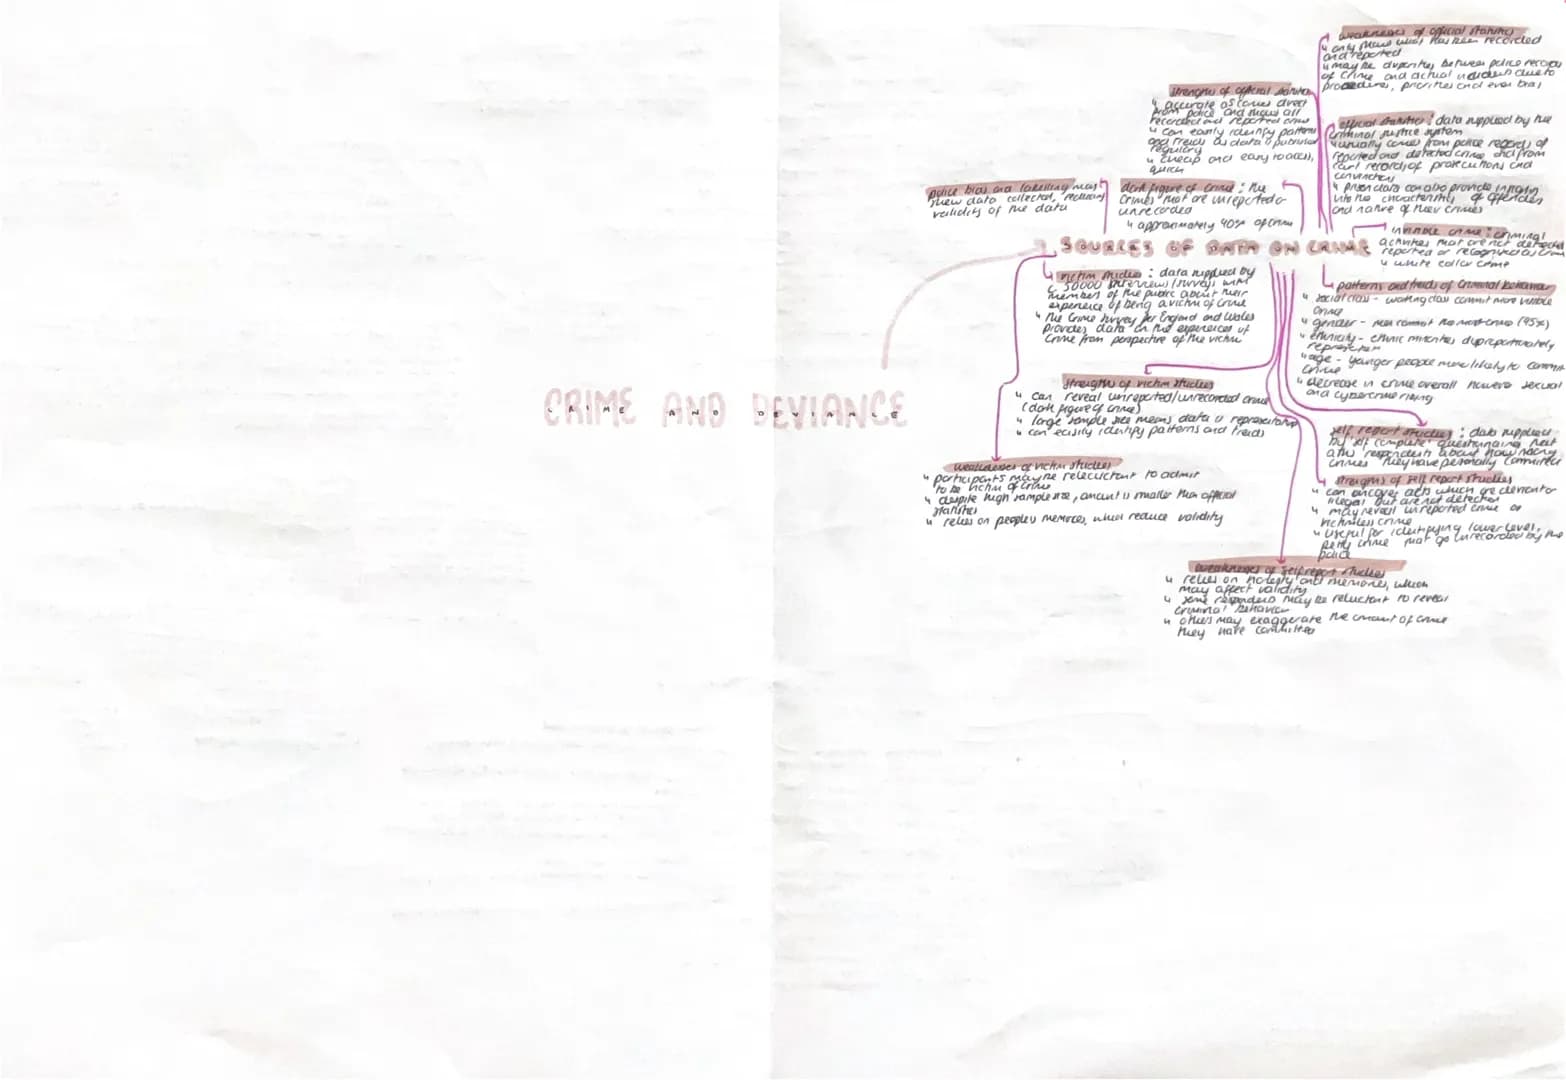 CRIME AND DEVIANCE
CRIME AND DEVIANCE
SOURCES OF DATA ON CRIME
weaknesses of official statistics
↳ only shows what has been recorded
and reported
↳ may be disparities between police records
of crime and actual incidents due to
procedures, priorities and even bias
strengths of official statistics
↳ accurate as comes direct
from police and shows all
recorded and reported crime
↳ can easily identify patterns
and trends as data is published
regularly
↳ cheap and easy to access,
quick
official statistics : data supplied by the
criminal justice system
↳ usually comes from police records of
reported and detected crime and from
court records of prosecutions and
convictions
↳ prison data can also provide insight
into the characteristics of offenders
and nature of their crimes
police bias and labelling may
skew data collected, reducing
validity of the data
dark figure of crime : the
crimes that are unreported or
unrecorded
↳ approximately 40% of crime
invisible crime : criminal
activities that are not detected
reported or recognised as crime
↳ white collar crime
victim studies : data supplied by
50000 interviews/surveys with
members of the public about their
experience of being a victim of crime
↳ the Crime Survey for England and Wales
provides data on the experiences of
crime from perspective of the victim
patterns and trends of criminal behaviour
↳ social class - working class commit more visible
crime
↳ gender - men commit the most crime (95%)
↳ ethnicity - ethnic minorities disproportionately
represented
↳ age - younger people more likely to commit
crime
↳ decrease in crime overall however sexual
and cybercrime rising
strengths of victim studies
↳ can reveal unreported/unrecorded crime
(dark figure of crime)
↳ large sample size means data is representative
↳ can easily identify patterns and trends
weaknesses of victim studies
↳ participants may be reluctant to admit
to be victim of crime
↳ despite high sample size, amount is smaller than official
statistics
↳ relies on people's memories, which reduce validity
self report studies : data supplied
by 'self complete' questionnaires that
ask respondents about how many
crimes they have personally committed
strengths of self report studies
↳ can uncover acts which are deviant or
illegal but are not detected
↳ may reveal unreported crime or
victimless crime
↳ useful for identifying lower level,
petty crime that go unrecorded by the
police
weaknesses of self report studies
↳ relies on honesty and memories, which
may affect validity
↳ some responders may be reluctant to reveal
criminal behaviour
↳ others may exaggerate the amount of crime
they have committed